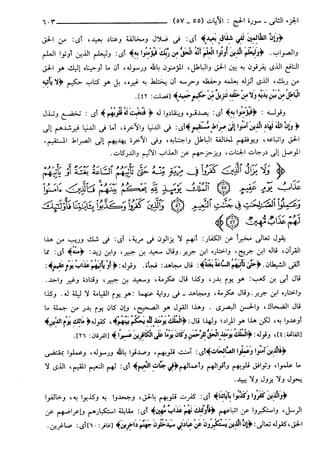 الجزء الثاني - سورة الحج : الآيات (٥٥ - ٥٧) ٦٠٣
﴿وَإِنَّ الظَّالِمِينَ لَفِي شِقَاقٍ بَعِيدٍ﴾ أي : في ضلال ومخالفة وعناد بعيد، أي : من الحق
والصواب . ﴿وَلِيَعْلَمَ الَّذِينَ أُوتُوا الْعِلْمَ أَنَّهُ الْحَقُّ مِن رَّبِّكَ فَيُؤْمِنُوا بِهِ﴾ أي : وليعلم الذين أوتوا العلم
النافع الذي يفرقون به بين الحق والباطل، المؤمنون بالله ورسوله، أن ما أوحيناه إليك هو الحق
من ربك، الذي أنزله بعلمه وحفظه وحرسه أن يختلط به غيره، بل هو كتاب حكيم ﴿لَا يَأْتِيهِ
الْبَاطِلُ مِن بَيْنِ يَدَيْهِ وَلَا مِنْ خَلْفِهِ تَنزِيلٌ مِّنْ حَكِيمٍ حَمِيدٍ﴾ [فصلت : ٤٢].
وقوله : ﴿فَيُؤْمِنُوا بِهِ﴾ أي : يصدقوه وينقادوا له ﴿فَتُخْبِتَ لَهُ قُلُوبُهُمْ﴾ أي : تخضع وتذل
﴿وَإِنَّ اللَّهَ لَهَادِ الَّذِينَ آمَنُوا إِلَى صِرَاطٍ مُّسْتَقِيمٍ﴾ أي : في الدنيا والآخرة، أما في الدنيا فيرشدهم إلى
الحق واتباعه، ويوفقهم لمخالفة الباطل واجتنابه، وفي الآخرة يهديهم إلى الصراط المستقيم،
الموصل إلى درجات الجنات، ويزحزحهم عن العذاب الأليم والدركات.
وَلَا يَزَالُ الَّذِينَ كَفَرُوا فِي مِرْيَةٍ مِّنْهُ حَتَّىٰ تَأْتِيَهُمُ السَّاعَةُ بَغْتَةً أَوْ يَأْتِيَهُمْ
عَذَابُ يَوْمٍ عَقِيمٍ ﴿٥٥﴾ الْمُلْكُ يَوْمَئِذٍ لِّلَّهِ يَحْكُمُ بَيْنَهُمْ فَالَّذِينَ آمَنُوا وَعَمِلُوا
الصَّالِحَاتِ فِي جَنَّاتِ النَّعِيمِ ﴿٥٦﴾ وَالَّذِينَ كَفَرُوا وَكَذَّبُوا بِآيَاتِنَا فَأُولَٰئِكَ
لَهُمْ عَذَابٌ مُّهِينٌ ﴿٥٧﴾
يقول تعالى مخبراً عن الكفار : أنهم لا يزالون في مرية، أي : في شك وريب من هذا
القرآن، قاله ابن جريج، واختاره ابن جرير. وقال سعيد بن جبير، وابن زيد : ﴿مِنْهُ﴾ أي : مما
ألقى الشيطان. ﴿حَتَّىٰ تَأْتِيَهُمُ السَّاعَةُ بَغْتَةً﴾ : قال مجاهد : فجأة. وقوله : ﴿أَوْ يَأْتِيَهُمْ عَذَابُ يَوْمٍ عَقِيمٍ﴾ :
قال أبي بن كعب : هو يوم بدر، وكذا قال عكرمة، وسعيد بن جبير، وقتادة وغير واحد.
واختاره ابن جرير. وقال عكرمة، ومجاهد - في رواية عنهما : هو يوم القيامة لا ليلة له. وكذا
قال الضحاك، والحسن البصري . وهذا القول هو الصحيح، وإن كان يوم بدر من جملة ما
أوعدوا به، لكن هذا هو المراد؛ ولهذا قال : ﴿الْمُلْكُ يَوْمَئِذٍ لِّلَّهِ يَحْكُمُ بَيْنَهُمْ﴾، كقوله ﴿مَالِكِ يَوْمِ الدِّينِ﴾
[الفاتحة : ٤]، وقوله : ﴿الْمُلْكُ يَوْمَئِذٍ الْحَقُّ لِلرَّحْمَٰنِ وَكَانَ يَوْمًا عَلَى الْكَافِرِينَ عَسِيرًا﴾ [الفرقان : ٢٦].
﴿فَالَّذِينَ آمَنُوا وَعَمِلُوا الصَّالِحَاتِ﴾ أي : آمنت قلوبهم، وصدقوا بالله ورسوله، وعملوا بمقتضى
ما علموا، وتوافق قلوبهم وأقوالهم وأعمالهم ﴿فِي جَنَّاتِ النَّعِيمِ﴾ أي : لهم النعيم المقيم، الذي لا
يحول ولا يزول ولا يبيد.
﴿وَالَّذِينَ كَفَرُوا وَكَذَّبُوا بِآيَاتِنَا﴾ أي : كفرت قلوبهم بالحق، وجحدوا به وكذبوا به، وخالفوا
الرسل، واستكبروا عن اتباعهم ﴿فَأُولَٰئِكَ لَهُمْ عَذَابٌ مُّهِينٌ﴾ أي : مقابلة استكبارهم وإعراضهم عن
الحق، كقوله تعالى : ﴿إِنَّ الَّذِينَ يَسْتَكْبِرُونَ عَنْ عِبَادَتِي سَيَدْخُلُونَ جَهَنَّمَ دَاخِرِينَ﴾ [غافر : ٦٠] أي : صاغرين.